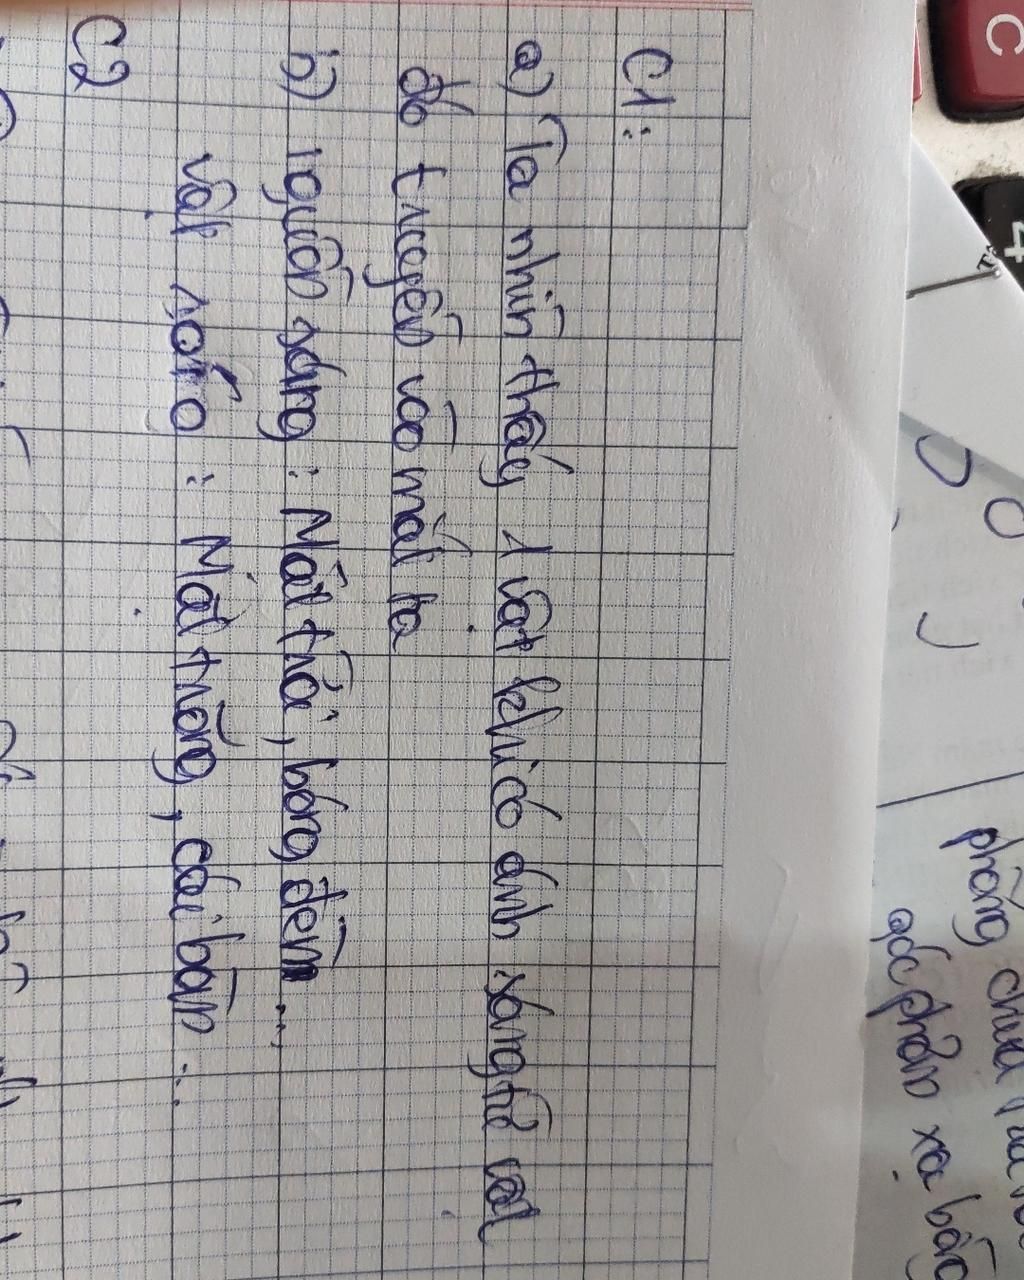 C1:
a) Ta nhìn thấy 1 vật khi có ánh sáng từ vật
đó truyền vào mắt ta
b) nguồn sáng: Mặt trời, bóng đèn...
vật sáng: Mặt trăng, cái bàn...
C2
phẳng
góc phản xạ bằng
C
4